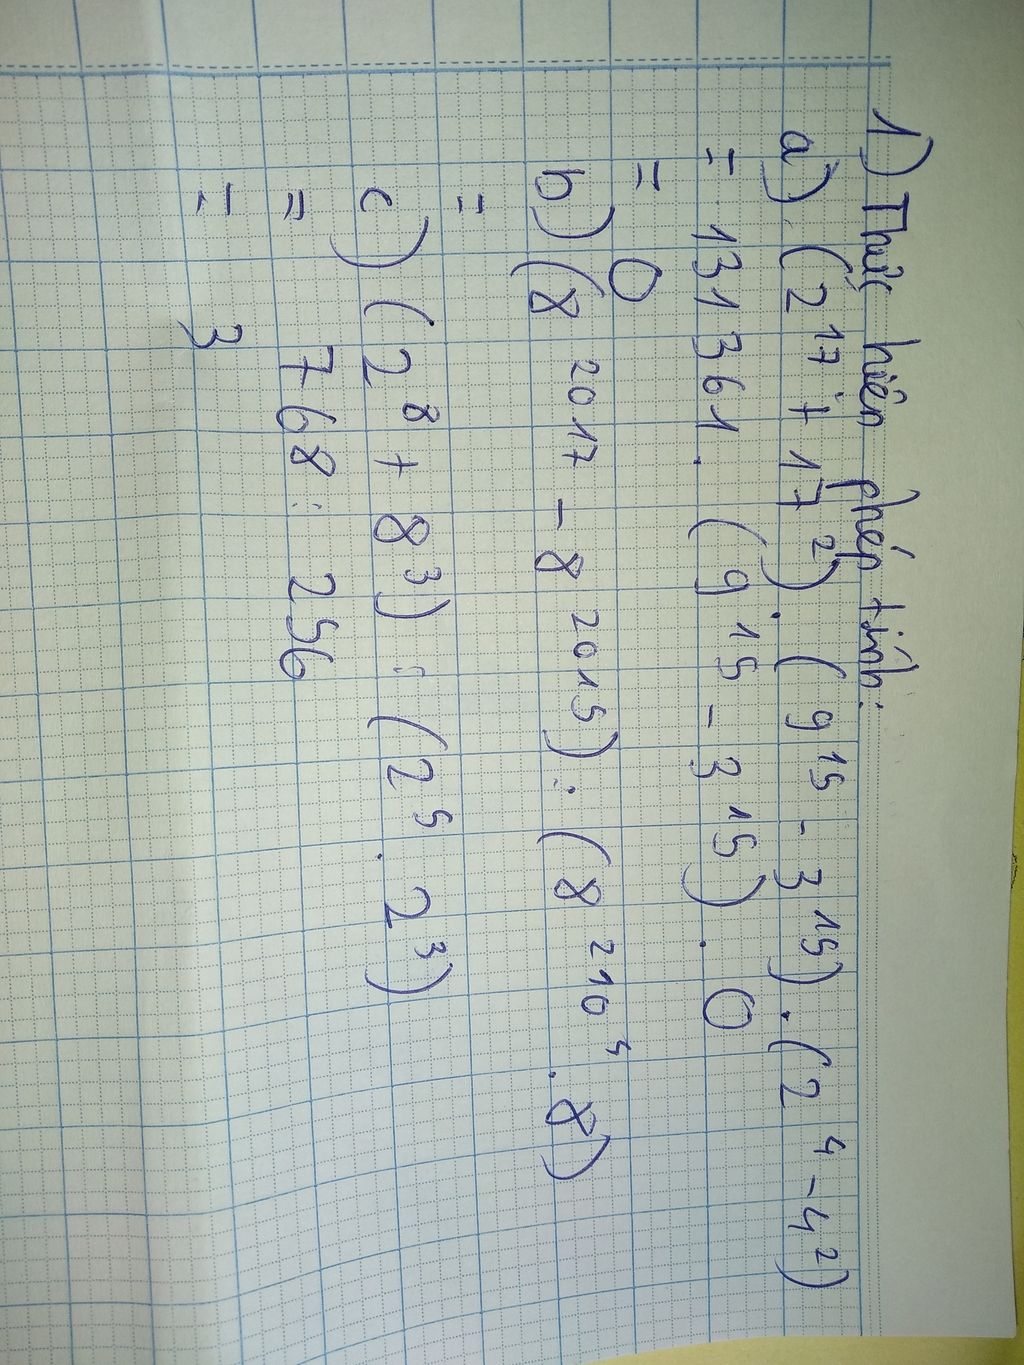 1) Thực hiện phép tính:
a) (2¹⁷ + 17²) . (9¹⁵ - 3¹⁵) . (2⁴ - 4²)
= 131361 . (9¹⁵ - 3¹⁵) . 0
= 0
b) (8²⁰¹⁷ - 8²⁰¹⁵) : (8²¹⁰⁴ . 8)
=
c) (2⁸ + 8³) : (2⁵ . 2³)
= 768 : 256
= 3